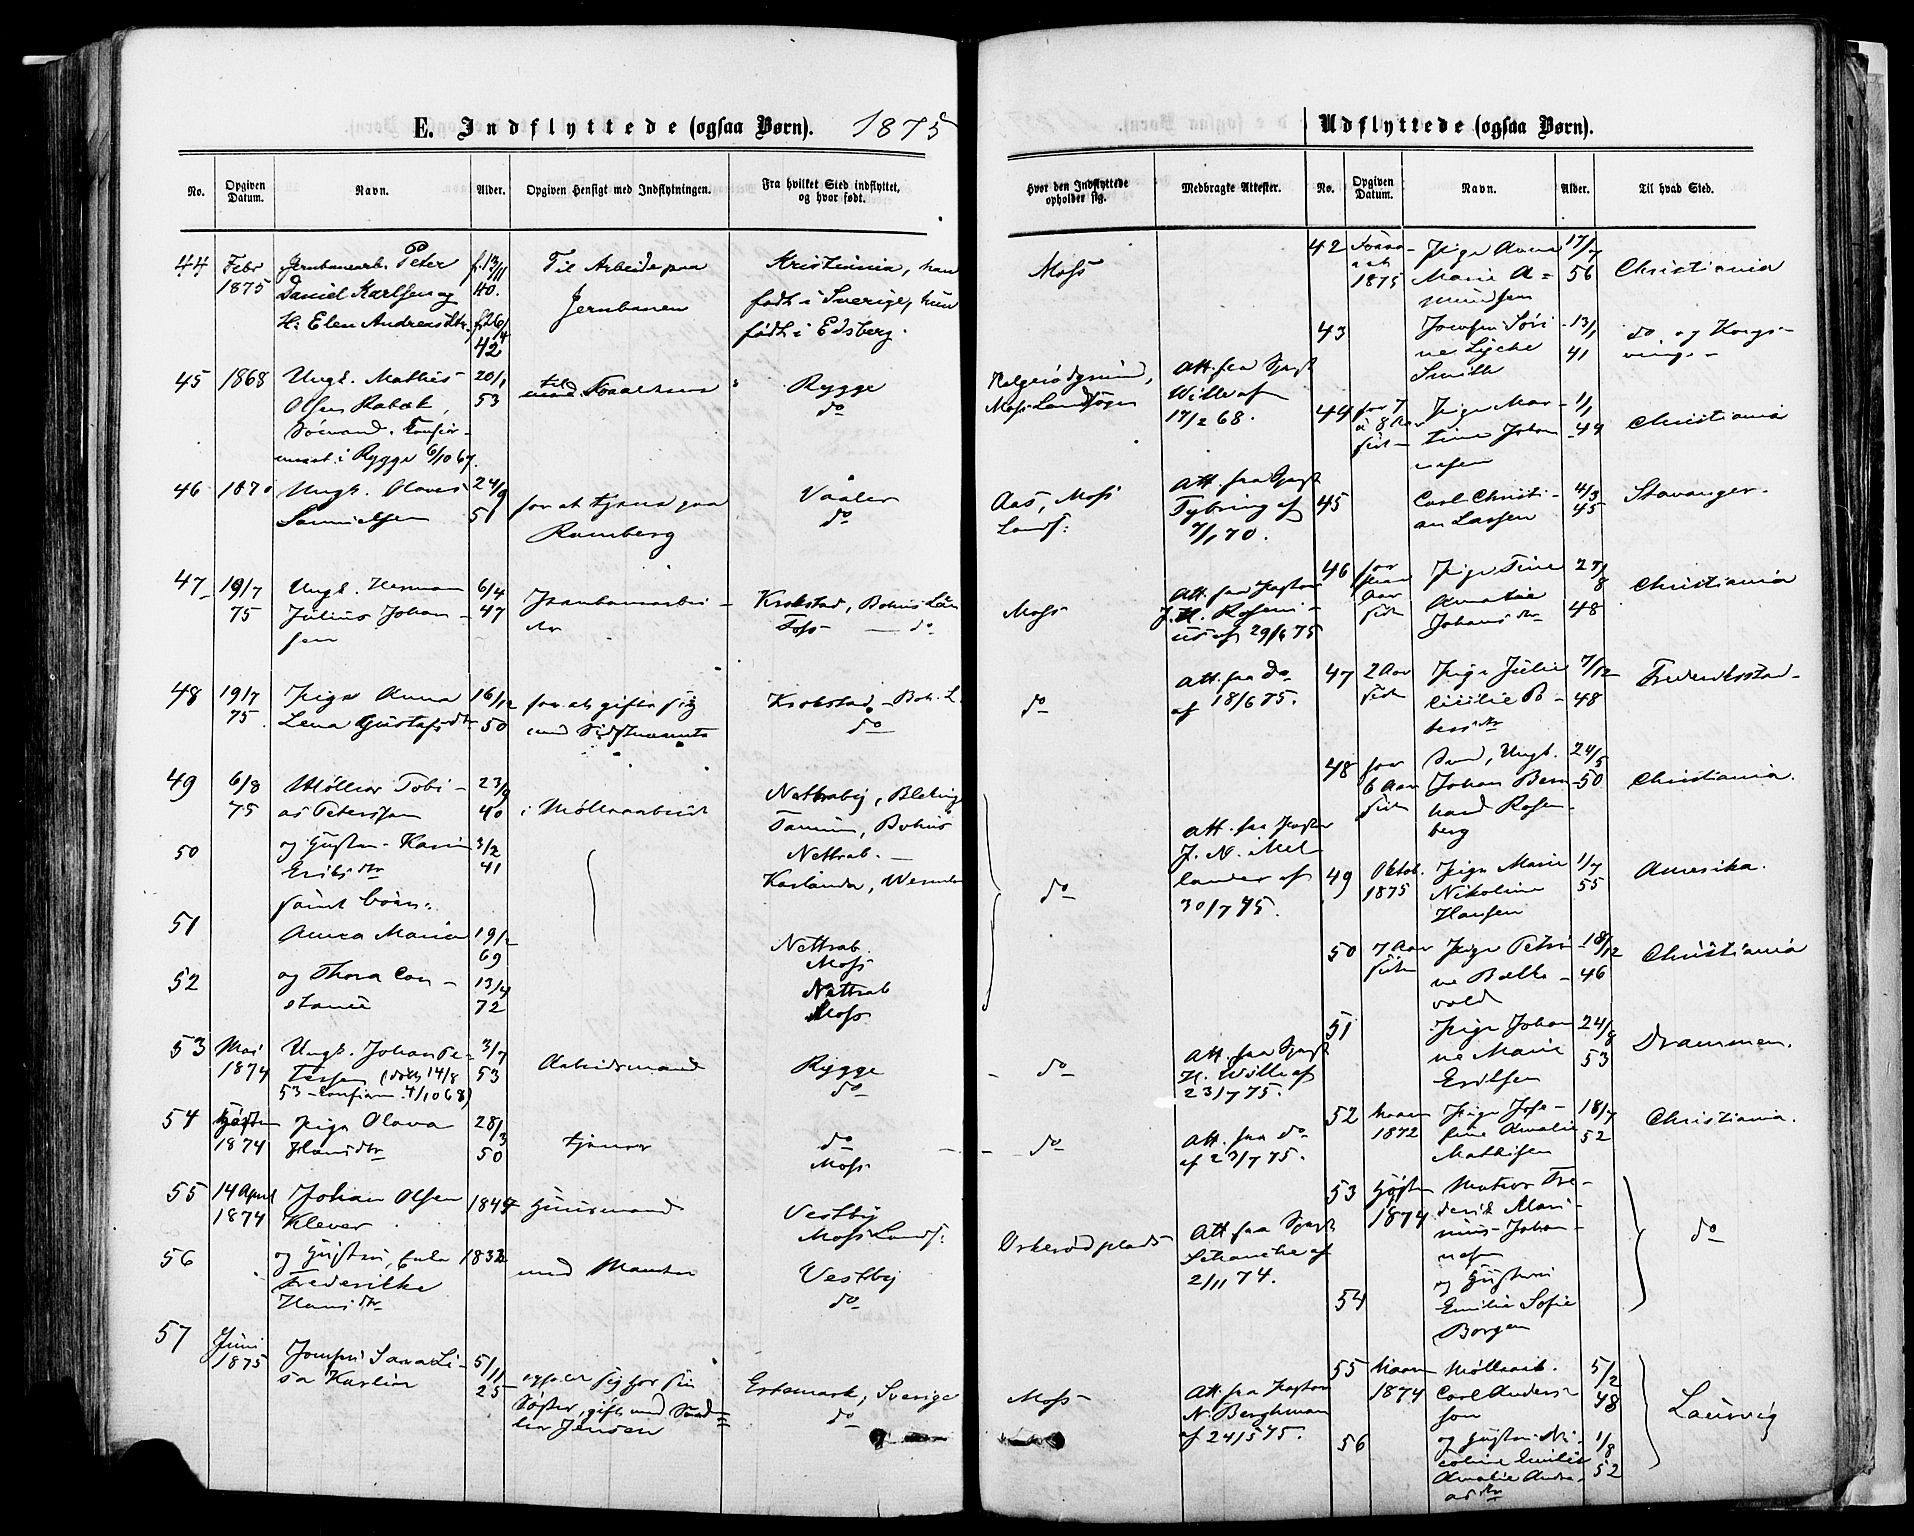 E. Indflyttede (ogsaa Børn). 1875
No. Opgiven Datum. Navn. Alder. Opgiven Hensigt med Indflytningen. Fra hvilket Sted indflyttet, og hvor født.
44 Febr 1875 Jernbanearb. Peter Daniel Karlsen og H: Elen Andreasdtr f. 13/11 40. f. 26/4 42 Til Arbeide paa Jernbanen Kristiania, han født i Sverige, hun født i Edsberg.
45 1868 Ungk. Mathis Olsen Rabæk, Sömand. Konfirmert i Rygge 6/10 67. 20/1 53 til Rygge do
46 1870 Ungk. Olaves Samuelsen 24/9 51 for at tjene paa Ramberg Vaaler do
47 19/7 75 Ungk. Herman Julius Johansen 6/4 47 Jernbanearbeider Krokstad, Bohus Län Foss do
48 19/7 75 Pige Anna Lena Gustafsdtr 16/12 50 for at gifte sig med Krokstad, Boh. L do
49 6/8 75 Møller Tobias Petersson 23/9 40 i Møllearbeide Nettraby, Bleking Tanum, Bohus
50 og Hustru Karin Eriksdtr 3/2 41 Nettrab. Karlanda, Wermla
samt börn:
51 Anna Maria 19/2 69 Nettrab. Moss
52 og Thora Constance 13/4 72 Nettrab Moss
53 Mai 1874 Ungk. Johan Petersen (døbt 14/8 53 - confirm. 4/10 68) 3/7 53 Arbeidsmand Rygge do
54 Høsten 1874 Pige Olava Hansdtr 28/3 50 tjener do Moss
55 14 April 1874 Johan Olsen Klever 1845 Huusmand Vestby Moss Lands:
56 og Hustru, Frederikke Hansdtr 1832 med Manden Vestby do
57 Juni 1875 Jomfru Sara Lisa Karlin 5/11 25 opholder sig hos sin Søster, gift med Jensen Edsmark, Sverige do
Udflyttede (ogsaa Børn).
Hvor den Indflyttede opholder sig. Medbragte Attester. No. Opgiven Datum. Navn. Alder. Til hvad Sted.
Moss
Helgerödgrind, Moss Landsogn Att. fra Sgpr Wille af 17/2 68.
Aas, Moss Lands: Att. fra Sgpr Tybring af 7/1 70.
Moss Att. fra Pastor J. H. Roseni- us af 29/6 75
do Att. fra do af 18/6 75.
do Att. fra Pastor J. N. Melander af 30/7 75.
do Att. fra Sgpr H. Wille af 23/7 75.
do Att. fra do af 23/7 75.
Orkerödplads Att fra Sgpr Schanche af 2/11 74.
Moss Att. fra Pastor N. Berghman af 24/5 75.
42 1875 Pige Anne Marie Amundsen 17/7 56 Christiania
43 Josefine Lyche Smith 13/1 41 do og Kongsving.
44 for 7 a 8 Aar siden Pige Martine Johannesen 1/1 44 Christiania
45 Carl Christian Larsen 4/3 45 Stavanger.
46 for Aar siden Pige Tine Amalie Johansdtr 27/8 48 Christiania
47 2 Aar siden Pige Julie Cecilie 7/12 48 Frederiksstad
48 for 6 Aar siden Ungk. Johan Bernhard Rosenberg 24/5 50 Christiania.
49 Oktob. 1875 Pige Marie Nikoline Hansen 1/7 55 Amerika.
50 7 Aar siden Pige Petrine Bakkevold 18/12 46 Christiania
51 Pige Johanne Marie Erilsen 24/8 53 Drammen.
52 Vaaren 1872 Pige Josefine Amalie Mathisen 18/7 52 Christiania.
53 Høsten 1874 Matros Frederik Marinius Johannesen
54 og Hustru Emilie Sofie Borgen do
55 Vaaren 1874 Møllearb. Carl Anderson 5/2 48
56 og Hustru Nicoline Emilie Amalie Andreasdtr 1/8 52 Laurvig